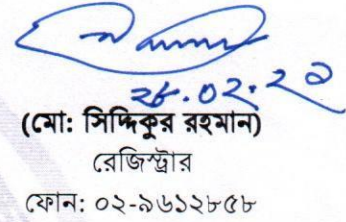 ২৮.০২.২১
(মো: সিদ্দিকুর রহমান)
রেজিস্ট্রার
ফোন: ০২-৯৬১২৮৫৮